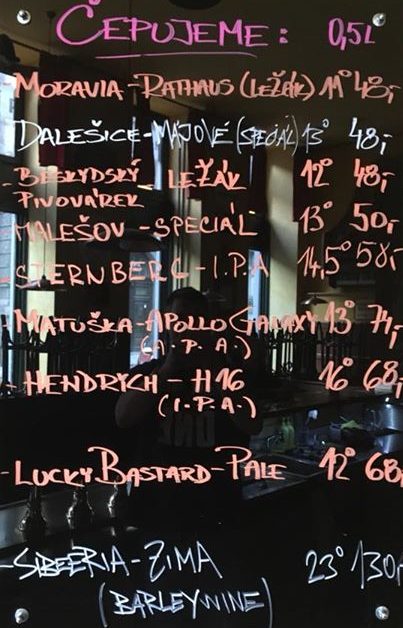 ČEPUJEME: 0,5L
-MORAVIA-RATHAUS (LEŽÁK) 11° 48,-
DALEŠICE-MÁJOVÉ (SPECIÁL) 13° 48,-
-BESKYDSKÝ LEŽÁK 12° 48,-
PIVOVÁREK
-MALEŠOV-SPECIÁL 13° 50,-
-STERNBERG-I.P.A 14,5° 58,-
-MATUŠKA-APOLLO GALAXY 13° 74,-
(A.P.A.)
-HENDRYCH-H16 16° 68,-
(I.P.A.)
-LUCKY BASTARD-PALE 12° 68,-
-SIBEERIA-ZIMA 23° 130,-
(BARLEYWINE)